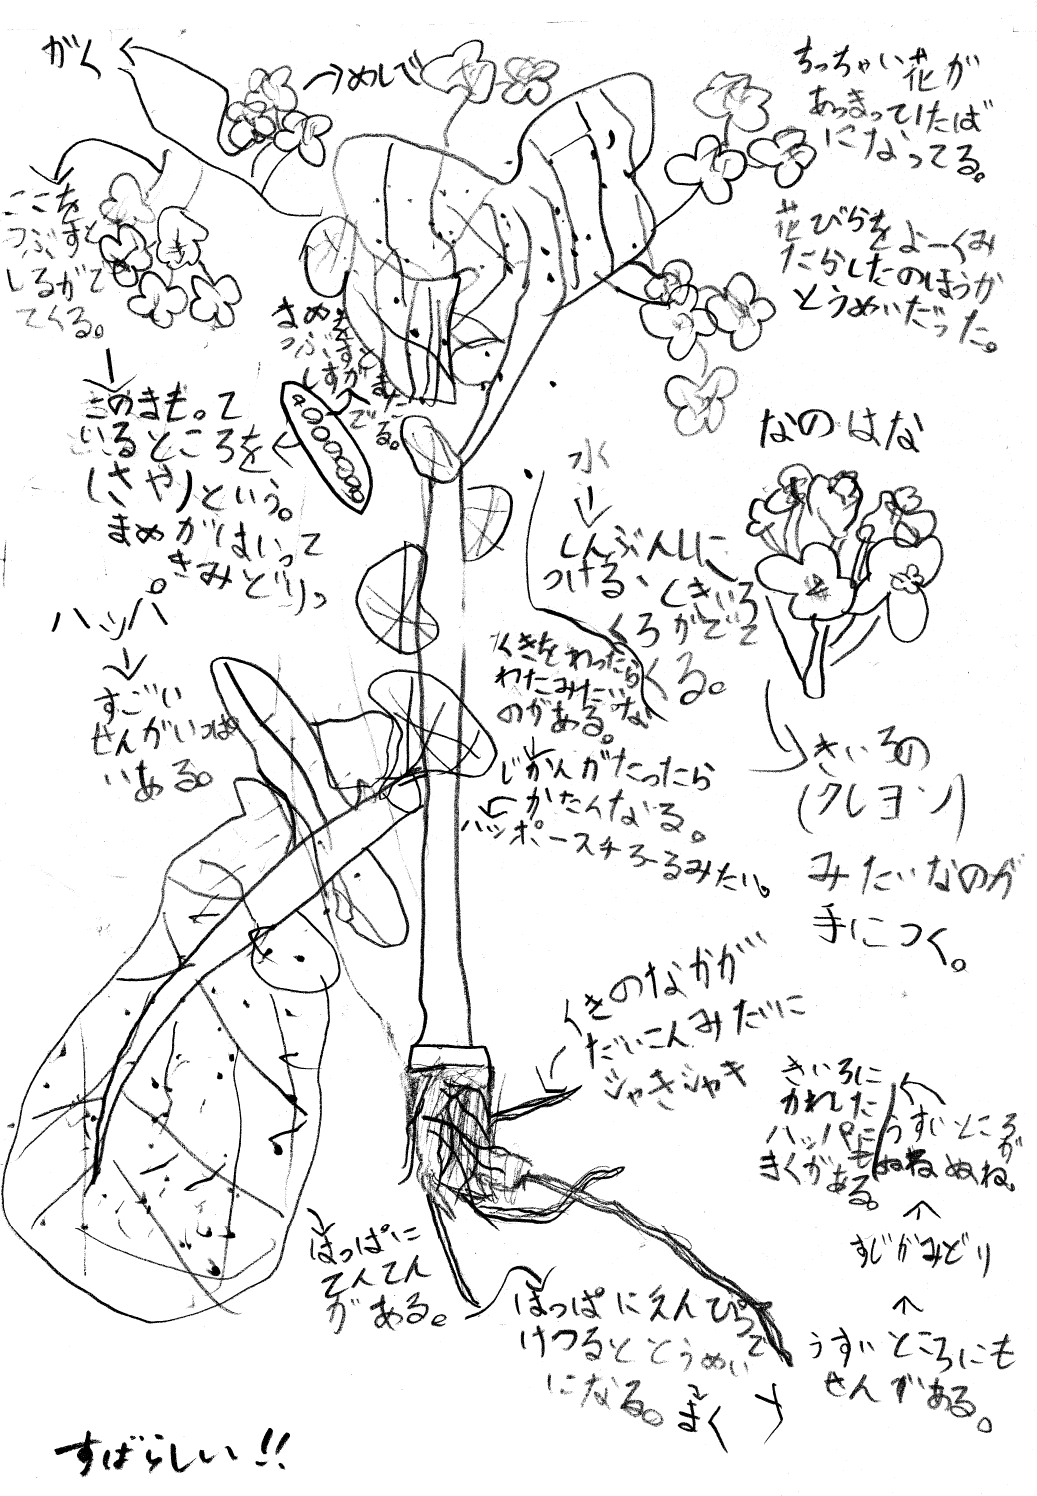 がく
めしで
ちっちゃい花が
あつまっていたば
になってる。
花びらをよーくみ
たらしたのほうが
とうめいだった。
ここを
つぶすと
しるがで
てくる。
まめを
つぶすと
しるが
でる。
このまも。て
いるところを
(さや)という。
まめがはいって
きみどりっ
なのはな
水
しんぶんしに
つける、くきいろ
くろがでて
くる。
ハッパ。
すごい
せんがいっぱ
いある。
くきをわったら
わたみたいな
のがある。
じかんがたったら
かたくなる。
ハッポースチろーるみたい。
きいろの
(クレヨン)
みたいなのが
手につく。
くきのなかが
だいこんみたいに
シャきシャキ
きいろに
かれした
ハッパにも
まくがある。
うすいところが
ぬね
すじがみどり
うすいところにも
せんがある。
はっぱに
てんてん
がある。
はっぱにえんぴつで
けつるととうめい
になる。
まく
すばらしい!!